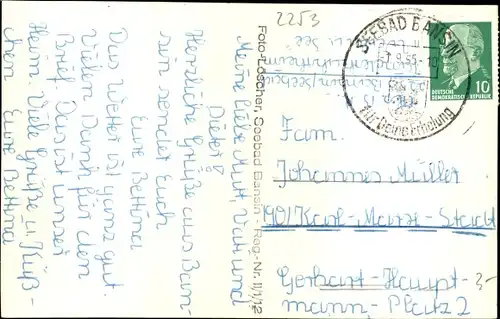 2253
Meine liebe Mutti, Vati und
Dieter!
Herzliche Grüße aus Ban-
sin sendet Euch
Eure Bettina
Das Wetter ist ganz gut.
Vielen Dank für den
Brief. Das ist unser
Heim. Viele Grüße u. Küß-
chen Eure Bettina
Foto-Löscher, Seebad Bansin · Reg.-Nr. II/1/12
SEEBAD BANSIN
9.65-10
für Deine Erholung
10
DEUTSCHE
DEMOKRATISCHE REPUBLIK
Fam.
Johannes Müller
901 Karl-Marx-Stadt
Gerhart-Haupt-
mann-Platz 2
3-